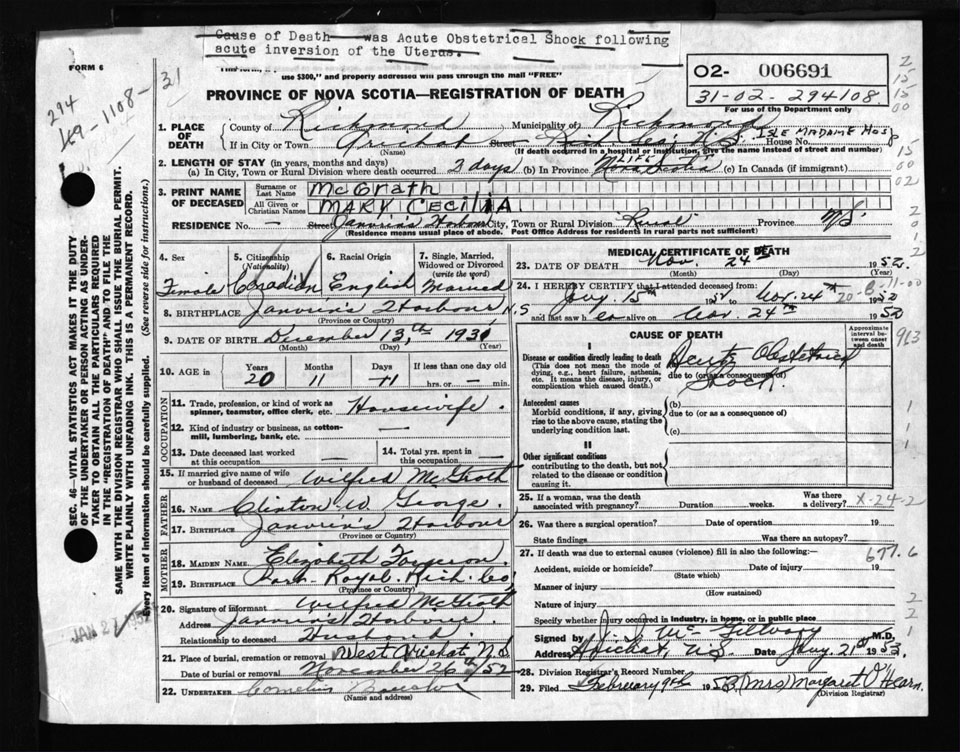 Cause of Death was Acute Obstetrical Shock following
acute inversion of the Uterus.
FORM 6
31
294
169-1108-
use $300," and properly addressed will pass through the mail "FREE"
PROVINCE OF NOVA SCOTIA—REGISTRATION OF DEATH
02- 006691
31-02-294108
For use of the Department only
1. PLACE OF DEATH County of Richmond Municipality of Richmond
If in City or Town Arichat Street House No. ISLE MADAME HOSP
(Name) (If death occurred in a hospital or institution, give the name instead of street and number)
2. LENGTH OF STAY (in years, months and days)
(a) In City, Town or Rural Division where death occurred 2 days (b) In Province LIFE Nova Scotia (c) In Canada (if immigrant)
3. PRINT NAME OF DECEASED Surname or Last Name McGrath
All Given or Christian Names MARY CECILIA
RESIDENCE No. — Street Janvrin's Harbour City, Town or Rural Division Rural Province N.S.
(Residence means usual place of abode. Post Office Address for residents in rural parts not sufficient)
SEC. 46—VITAL STATISTICS ACT MAKES IT THE DUTY
OF THE UNDERTAKER OR PERSON ACTING AS UNDER-
TAKER TO OBTAIN ALL THE PARTICULARS REQUIRED
IN THE "REGISTRATION OF DEATH" AND TO FILE THE
SAME WITH THE DIVISION REGISTRAR WHO SHALL ISSUE THE BURIAL PERMIT.
WRITE PLAINLY WITH UNFADING INK. THIS IS A PERMANENT RECORD.
Every item of information should be carefully supplied. (See reverse side for instructions.)
4. Sex 5. Citizenship (Nationality) 6. Racial Origin 7. Single, Married, Widowed or Divorced (write the word)
Female Canadian English Married
8. BIRTHPLACE Janvrin's Harbour N.S
(Province or Country)
9. DATE OF BIRTH December 13th 1931
(Month) (Day) (Year)
10. AGE in Years Months Days If less than one day
20 11 11 hrs. or — min.
OCCUPATION
11. Trade, profession, or kind of work as spinner, teamster, office clerk, etc. Housewife.
12. Kind of industry or business, as cotton-mill, lumbering, bank, etc. —
13. Date deceased last worked at this occupation — 14. Total yrs. spent in this occupation —
15. If married give name of wife or husband of deceased Wilfred McGrath
FATHER
16. NAME Clinton W. George.
17. BIRTHPLACE Janvrin's Harbour
(Province or Country)
MOTHER
18. MAIDEN NAME Elizabeth
19. BIRTHPLACE Port Royal. Rich. Co
(Province or Country)
20. Signature of informant Wilfred McGrath
Address Janvrin's Harbour
Relationship to deceased Husband.
21. Place of burial, cremation or removal West Arichat N.S
Date of burial or removal November 26th/52
22. UNDERTAKER Cornelius
MEDICAL CERTIFICATE OF DEATH
23. DATE OF DEATH Nov. 24th 1952.
(Month) (Day) (Year)
24. I HEREBY CERTIFY that I attended deceased from:
15th 1952 to Nov. 24th 1952
and last saw her alive on Nov. 24th 1952
CAUSE OF DEATH
Approximate interval between onset and death
I
Disease or condition directly leading to death
(This does not mean the mode of dying, e.g., heart failure, asthenia, etc. It means the disease, injury, or complication which caused death.)
(a) Acute Obstetrical Shock.
due to (or as a consequence of)
Antecedent causes
Morbid conditions, if any, giving rise to the above cause, stating the underlying condition last.
(b)
due to (or as a consequence of)
(c)
II
Other significant conditions
contributing to the death, but not related to the disease or condition causing it.
25. If a woman, was the death associated with pregnancy? Duration weeks. Was there a delivery? X-24-2
26. Was there a surgical operation? Date of operation 19
State findings Was there an autopsy?
27. If death was due to external causes (violence) fill in also the following:— 677.6
Accident, suicide or homicide? Date of injury 19
(State which)
Manner of injury
(How sustained)
Nature of injury
Specify whether injury occurred in industry, in home, or in public place
Signed by J. L. McGillvary M.D.
Address Arichat, N.S. Date Jany. 21st 1953.
28. Division Registrar's Record Number
29. Filed February 9th 1953 (Mrs) Margaret O'Hearn.
(Division Registrar)